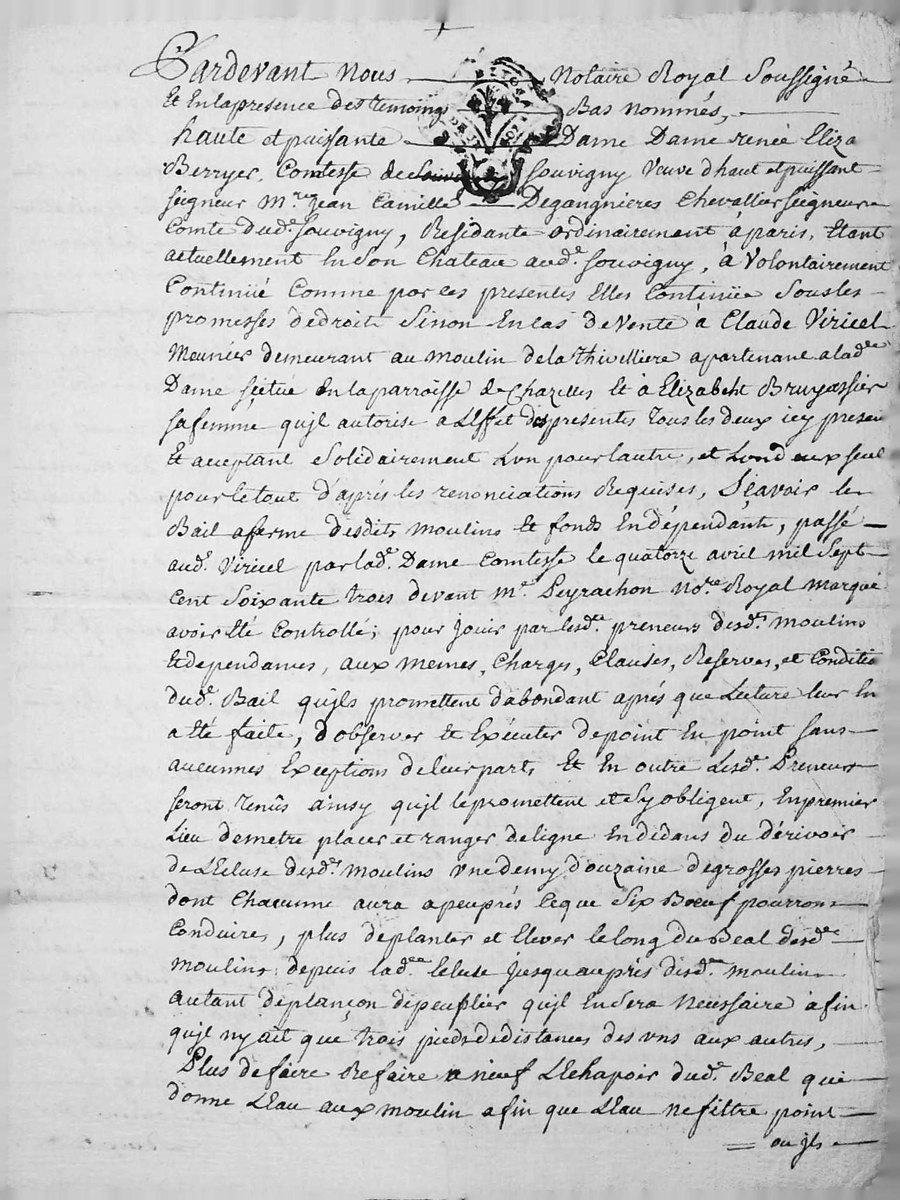 Pardevant Nous Notaire Royal Soussigné
Et En lapresence des temoings Bas nommés,
haute et puissante Dame Dame renée Eliza
Berryer, Comtesse de Souvigny Veuve d'haut et puissant
seigneur Mre. Jean Camille Degangnieres Chevallier seigneur
Comte dud.e Souvigny, Residante ordinairement à paris, Etant
actuellement En Son Chateau aud.e Souvigny, à Volontairement
Continüé Comme par ces presentes Elles Continüe Sousles
promesses dedroit Sinon En cas deVente à Claude Viricel
Meunier demeurant au moulin delathivilliere apartenant alad.e
Dame scituée En laparroisse deChazelles Et à Elizabeht Bruyassier
safemme qu'jl autorise a Leffet des presentes tous les deux icy presen
Et acceptant Solidairement Lun pour lautre, et Lund eux seul
pour letout d'après les renonciations Requises, Sçavoir le
Bail aferme desdits moulins Et fonds En dépendants, passé
aud.t Viricel par lad.e Dame Comtesse le quatorze avril mil Sept
cent Soixante trois devant m.e Peyrachon no.re Royal marqué
avoir Eté Controllé; pour Jouir par lesd.es preneurs desd.ts moulins
Et dependances, aux memes, Charges, Clauses, Reserves, et Conditio
dud.t Bail qu'jls promettent d'abondant aprés que Lecture leur En
a Eté faite, d'observer Et Exécuter de point En point sans
aucunnes Exceptions de leur parts Et En outre Lesd.ts Preneurs
seront tenûs ainsy qu'jl le promettent et Sy obligent, En premier
Lieu demetre placer et ranger deligne En dédans du dérivoir
de L'Ecluse desd.ts moulins vne demy douzaine degrosses pierres
dont Chacunne aura apeuprés Ceque Six Bœuf pourrons
Conduires, plus deplanter et Elever le long du Beal desd.es
moulins depuis lad.e Ecluse jusquauprés desd.ts moulins
autant deplançon depeuplier qu'jl En Sera Necessaire afin
qu'jl ny ait que trois pieds dedistances des vns aux autres,
Plus defaire Refaire aneuf L'Echapoir dud.t Beal qui
donne L'Eau aux moulin afin que L'Eau nefiltre point
ou jls